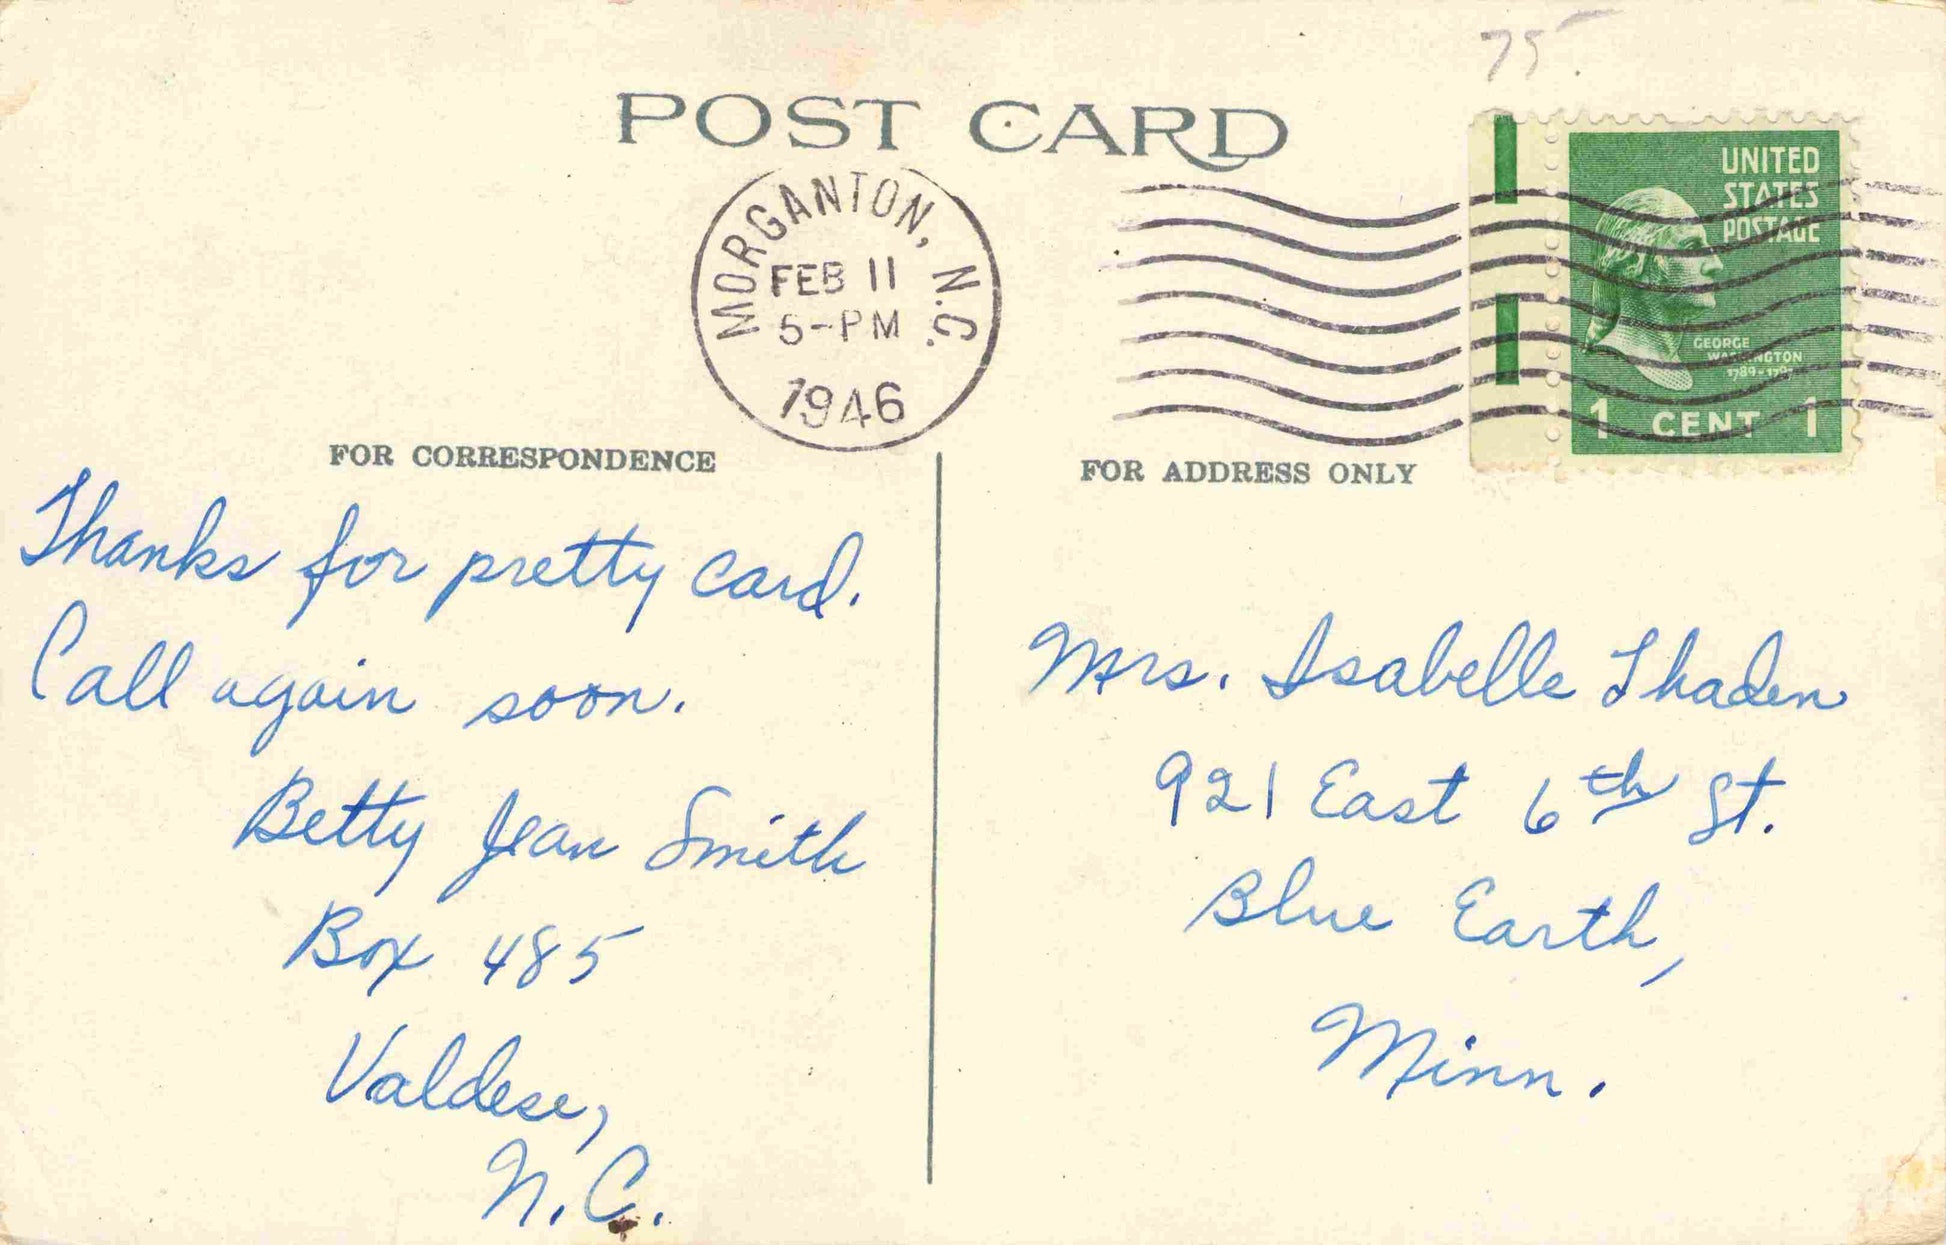 75
POST CARD
MORGANTON, N.C.
FEB 11
5-PM
1946
UNITED
STATES
POSTAGE
GEORGE
WASHINGTON
1789-1797
1 CENT 1
FOR CORRESPONDENCE
Thanks for pretty card.
Call again soon.
Betty Jean Smith
Box 485
Valdese,
N.C.
FOR ADDRESS ONLY
Mrs. Isabelle Thaden
921 East 6th St.
Blue Earth,
Minn.